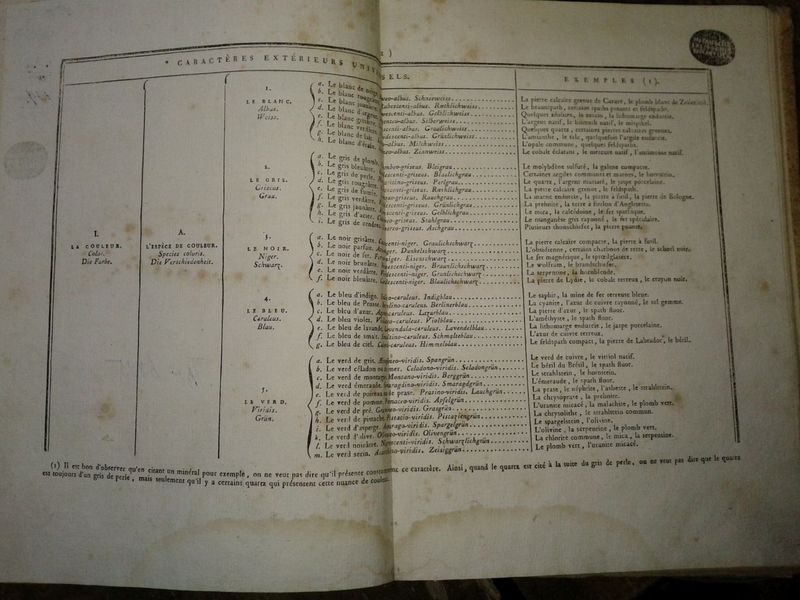 * CARACTÈRES EXTÉRIEURS
SELS.
EXEMPLES (1).
I.
LA COULEUR.
Color.
Die Farbe.
A.
L'ESPÈCE DE COULEUR.
Species coloris.
Die Verschiedenheit.
1.
LE BLANC.
Albus.
Weiss.
a. Le blanc de neige,
b. Le blanc rougeâtre,
c. Le blanc jaunâtre,
d. Le blanc d'argent,
e. Le blanc grisâtre,
f. Le blanc verdâtre,
g. Le blanc de lait,
h. Le blanc d'étain,
albus. Schneeweiss
albus. Rœthlichweiss
albus. Gelblichweiss
albus. Silberweiss
albus. Graulichweiss
albus. Grünlichweiss
albus. Milchweiss
albus. Zinnweiss
La pierre calcaire grenue de Carare, le plomb blanc de
Le braunspath, certains spaths pesants et feldspaths.
L'argent natif, le bismuth natif, le mispikel.
Quelques quartz, certaines pierres calcaires grenues.
L'amianthe, le talc, quelquefois l'argile endurcie.
L'opale commune, quelques feldspaths.
Le cobalt éclatant, le mercure natif, l'antimoine natif.
2.
LE GRIS.
Griseus.
Grau.
a. Le gris de plomb,
b. Le gris bleuâtre,
c. Le gris de perle,
d. Le gris rougeâtre,
e. Le gris de fumée,
f. Le gris verdâtre,
g. Le gris jaunâtre,
h. Le gris d'acier,
i. Le gris de cendres,
griseus. Bleigrau
griseus. Blaulichgrau
griseus. Perlgrau
griseus. Rœthlichgrau
griseus. Rauchgrau
griseus. Grünlichgrau
griseus. Gelblichgrau
griseus. Stahlgrau
griseus. Aschgrau
Le molybdène sulfuré, la galène compacte.
Certaines argiles communes et marnes, le hornstein.
Le quartz, l'argent muriaté, le jaspe porcelaine.
La pierre calcaire grenue, le feldspath.
La marne endurcie, la pierre à fusil, la pierre de Bologne.
La prehnite, la terre à foulon d'Angleterre.
Le mica, la calcédoine, le fer spathique.
Le manganèse gris rayonné, le fer spéculaire.
Plusieurs thonschiefer, la pierre ponce.
3.
LE NOIR.
Niger.
Schwarz.
a. Le noir grisâtre,
b. Le noir parfait,
c. Le noir de fer,
d. Le noir brunâtre,
e. Le noir verdâtre,
f. Le noir bleuâtre,
niger. Graulichschwarz
niger. Dunkelschwarz
niger. Eisenschwarz
niger. Braunlichschwarz
niger. Grunlichschwarz
niger. Blaulichschwarz
La pierre calcaire compacte, la pierre à fusil.
L'obsidienne, certains charbons de terre, le schorl noir.
Le fer magnétique, le spiezglasetz.
Le wolfram, le brandschiefer.
La serpentine, la hornblende.
La pierre de Lydie, le cobalt terreux, le crayon noir.
4.
LE BLEU.
Caruleus.
Blau.
a. Le bleu d'indigo,
b. Le bleu de Prusse,
c. Le bleu d'azur,
d. Le bleu violet,
e. Le bleu de lavande,
f. Le bleu de smalt,
g. Le bleu de ciel,
caruleus. Indigblau
caruleus. Berlinerblau
caruleus. Lazurblau
caruleus. Violblau
caruleus. Lavendelblau
caruleus. Schmalteblau
caruleus. Himmelblau
Le saphir, la mine de fer terreuse bleue.
La cyanite, l'azur de cuivre rayonné, le sel gemme.
La pierre d'azur, le spath fluor.
L'améthyste, le spath fluor.
La lithomarge endurcie, le jaspe porcelaine.
L'azur de cuivre terreux.
Le feldspath compact, la pierre de Labrador, le béril.
5.
LE VERD.
Viridis.
Grün.
a. Le verd de gris,
b. Le verd céladon
c. Le verd de montagne,
d. Le verd émeraude,
e. Le verd de
f. Le verd de pomme,
g. Le verd de pré,
h. Le verd de pistache,
i. Le verd d'asperge,
k. Le verd d'olive,
l. Le verd noirâtre,
m. Le verd serin,
viridis. Spangrün
viridis. Seladongrün
viridis. Berggrün
viridis. Smaragdgrün
viridis. Lauchgrün
viridis. Apfelgrün
viridis. Grasgrün
viridis. Pistaziengrün
viridis. Spargelgrün
viridis. Olivengrün
viridis. Schwarzlichgrün
viridis. Zeisiggrün
Le verd de cuivre, le vitriol natif.
Le béril du Brésil, le spath fluor.
Le strahlstein, le hornstein.
L'émeraude, le spath fluor.
La prase, le néphrite, l'asbeste, le strahlstein.
La chrysoprase, la prehnite.
L'uranite micacé, la malachite, le plomb vert.
La chrysolithe, le strahlstein commun.
Le spargelstein, l'olivine.
L'olivine, la serpentine, le plomb vert.
La chlorite commune, le mica, la serpentine.
Le plomb vert, l'uranite micacé.
(1) Il est bon d'observer qu'en citant un minéral pour exemple, on ne veut pas dire qu'il présente ce caractère. Ainsi, quand le quartz est cité à la suite du gris de perle, on ne veut pas dire que le quartz
est toujours d'un gris de perle, mais seulement qu'il y a certains quartz qui présentent cette nuance de couleur.